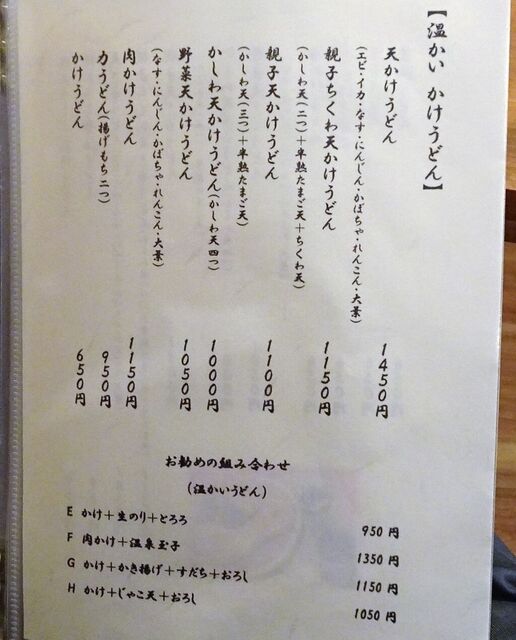 【温かい かけうどん】
天かけうどん 1450円
(エビ・イカ・なす・にんじん・かぼちゃ・れんこん・大葉)
親子ちくわ天かけうどん 1150円
(かしわ天(二つ)+半熟たまご天+ちくわ天)
親子天かけうどん 1100円
(かしわ天(三つ)+半熟たまご天)
かしわ天かけうどん(かしわ天四つ) 1000円
野菜天かけうどん 1050円
(なす・にんじん・かぼちゃ・れんこん・大葉)
肉かけうどん 1150円
力うどん(揚げもち二つ) 950円
かけうどん 650円
お勧めの組み合わせ
(温かいうどん)
E かけ+生のり+とろろ 950 円
F 肉かけ+温泉玉子 1350 円
G かけ+かき揚げ+すだち+おろし 1150 円
H かけ+じゃこ天+おろし 1050 円